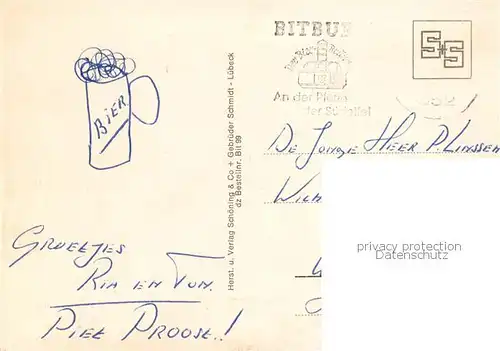 BIER
GROETJES
RIA EN TON.
PIET PROOST..!
Herst. u. Verlag Schöning & Co + Gebrüder Schmidt - Lübeck
dz Bestellnr. Bit 99
BITBU
An der Pforte
der Südeifel
S+S
DE JONGE HEER P. LINSSEN
privacy protection
Datenschutz